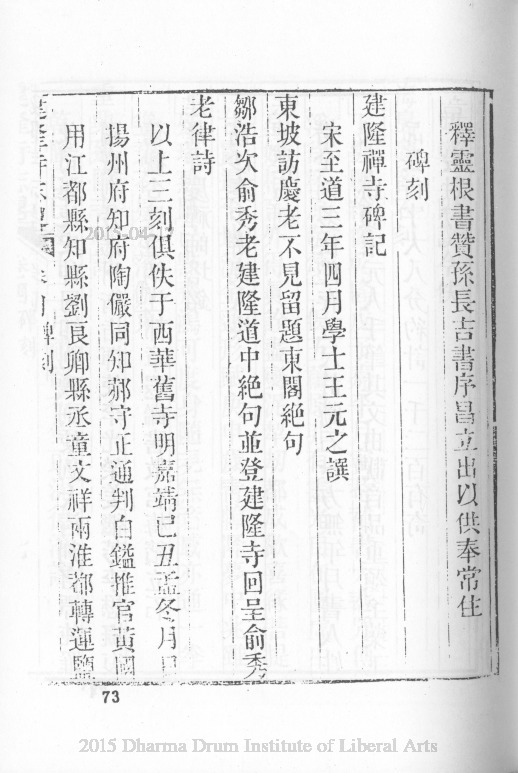 釋靈根書贊孫長吉書序昌立出以供奉常住
碑刻
建隆禪寺碑記
宋至道三年四月學士王元之譔
東坡訪慶老不見留題東閣絶句
鄒浩次俞秀老建隆道中絶句並登建隆寺回呈俞秀
老律詩
以上三刻俱佚于西華舊寺明嘉靖己丑孟冬月
揚州府知府陶儼同知郝守正通判白鑑推官黄國
用江都縣知縣劉良卿縣丞童文祥兩淮都轉運鹽
碑刻
2015.04.12
73
2015 Dharma Drum Institute of Liberal Arts